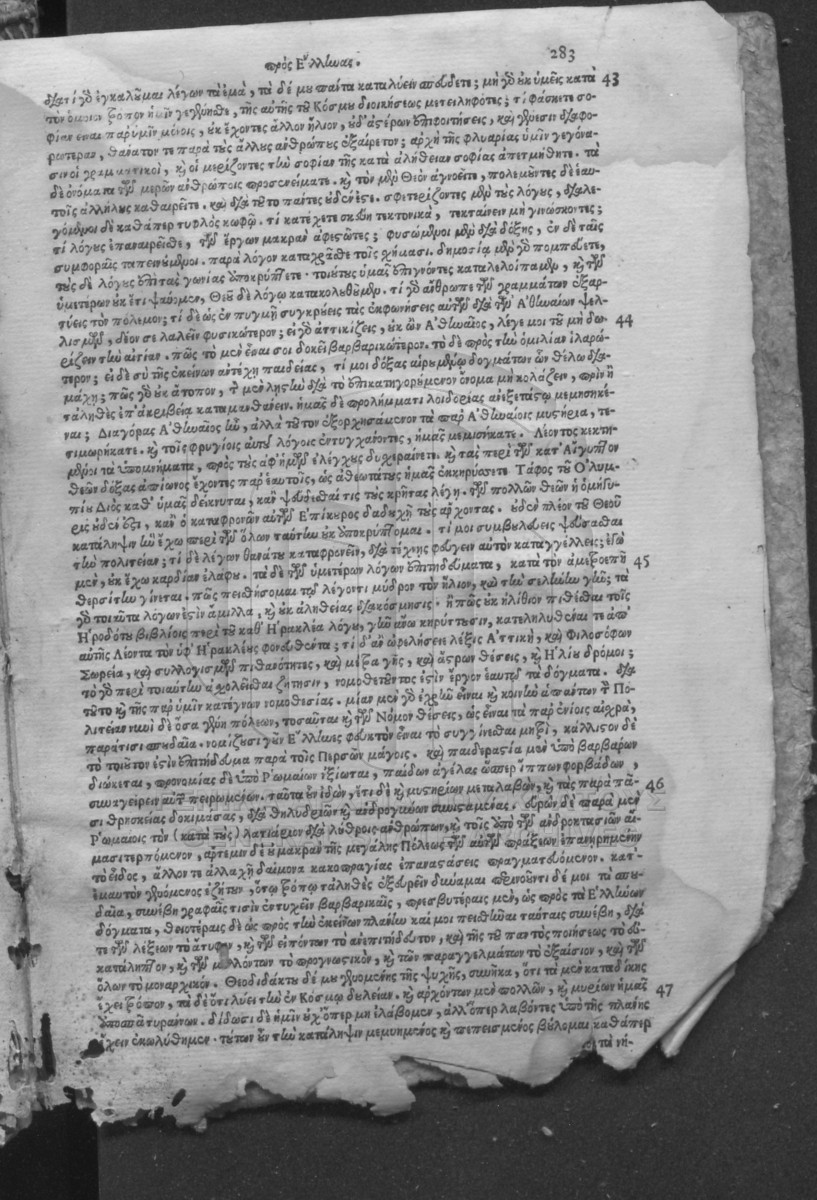 πρὸς Ἕλληνας. 283
διατί γὸ ἐγκαλοῦμαι λέγων τὰ ἐμὰ, τὰ δέ μου πάντα καταλύειν σπεύδετε; μὴ γὸ οὐκ ὑμεῖς κατὰ 43
τὸν ὅμοιον τρόπον ἡμῖν γεγένησθε, τῆς αὐτῆς τοῦ Κόσμου διοικήσεως μετειληφότες; τί φάσκετε σο-
φίαν εἶναι παρ' ὑμῖν μόνοις, οὐκ ἔχοντες ἄλλον ἥλιον, οὐδ' ἀστέρων ἐπιφοιτήσεις, καὶ γένεσιν διαφο-
ρωτέραν, θάνατόν τε παρὰ τοὺς ἄλλους ἀνθρώπους ἐξαίρετον; ἀρχὴ τῆς φλυαρίας ὑμῖν γεγόνα-
σιν οἱ γραμματικοὶ, καὶ οἱ μερίζοντες τὴν σοφίαν τῆς κατὰ ἀλήθειαν σοφίας ἀπετμήθητε. τὰ
δὲ ὀνόματα τῶν μερῶν ἀνθρώποις προσενείματε. καὶ τὸν μὲν Θεὸν ἀγνοεῖτε, πολεμοῦντες δὲ ἑαυ-
τοῖς ἀλλήλους καθαιρεῖτε. καὶ διὰ τοῦτο πάντες οὐδέν ἐστε. σφετερίζοντες μὲν τοὺς λόγους, διαλε-
γόμενοι δὲ καθάπερ τυφλὸς κωφῷ. τί κατέχετε σκεύη τεκτονικὰ, τεκταίνειν μὴ γινώσκοντες;
τί λόγους ἐπαναιρεῖσθε, τῶν ἔργων μακρὰν ἀφεστῶτες; φυσώμενοι μὲν διὰ δόξης, ἐν δὲ ταῖς
συμφοραῖς ταπεινούμενοι. παρὰ λόγον καταχρᾶσθε τοῖς σχήμασι. δημοσίᾳ μὲν γὸ πομπεύετε,
τοὺς δὲ λόγους ἐπὶ τὰς γωνίας ἀποκρύπτετε. τοιούτους ὑμᾶς ἐπιγνόντες καταλελοίπαμεν, καὶ τῶν
ὑμετέρων οὐκ ἔτι ψαύομεν, Θεοῦ δὲ λόγῳ κατακολουθοῦμεν. τί γὸ ἄνθρωπε τῶν γραμμάτων ἐξαρ-
τύεις τὸν πόλεμον; τί δὲ ὡς ἐν πυγμῇ συγκρούεις τὰς ἐκφωνήσεις αὐτῶν διὰ τῶν Ἀθηναίων ψελ-
λισμῶν, δέον σε λαλεῖν φυσικώτερον; εἰ γὸ ἀττικίζεις, οὐκ ὢν Ἀθηναῖος, λέγε μοι τοῦ μὴ δω- 44
ρίζειν τὴν αἰτίαν. πῶς τὸ μὲν εἶναί σοι δοκεῖ βαρβαρικώτερον. τὸ δὲ πρὸς τὴν ὁμιλίαν ἱλαρώ-
τερον; εἰ δὲ σὺ τῆς ἐκείνων αὐτέχῃ παιδείας, τί μοι δόξας αἱρουμένῳ δογμάτων ὧν θέλω δια-
μάχῃ; πῶς γὸ οὐκ ἄτοπον, τὸν μὲν λῃστὴν διὰ τὸ ἐπικατηγορούμενον ὄνομα μὴ κολάζειν, πρὶν ἢ
τἀληθὲς ἐπ' ἀκριβείᾳ καταμανθάνειν. ἡμᾶς δὲ προλήμματι λοιδορίας ἀνεξετάστῳ μεμισηκέ-
ναι; Διαγόρας Ἀθηναῖος ἦν, ἀλλὰ τοῦτον ἐξορχησάμενον τὰ παρ' Ἀθηναίοις μυστήρια, τε-
τιμωρήκατε. καὶ τοῖς φρυγίοις αὐτοῦ λόγοις ἐντυγχάνοντες, ἡμᾶς μεμισήκατε. Λέοντος κεκτη-
μένοι τὰ ὑπομνήματα, πρὸς τοὺς ἀφ' ἡμῶν ἐλέγχους δυχεραίνετε. καὶ τὰς περὶ τῶν κατ' Αἴγυπτον
θεῶν δόξας ἀπίωνος ἔχοντες παρ' ἑαυτοῖς, ὡς ἀθεωτάτους ἡμᾶς ἐκκηρύσσετε. Τάφος τοῦ Ὀλυμ-
πίου Διὸς καθ' ὑμᾶς δείκνυται, κἂν ψεύδεσθαί τις τοὺς κρῆτας λέγῃ. τῶν πολλῶν θεῶν ἡ ὁμήγυ-
ρις οὐδέν ἐστι, κἂν ὁ καταφρονῶν αὐτῶν Ἐπίκουρος δᾳδουχῇ τοὺς ἄρχοντας. οὐδὲν πλέον τοῦ Θεοῦ
κατάληψιν ἣν ἔχω περὶ τῶν ὅλων ταύτην οὐκ ἀποκρύπτομαι. τί μοι συμβουλεύεις ψεύσασθαι
τὴν πολιτείαν; τί δὲ λέγων θανάτου καταφρονεῖν, διὰ τέχνης φεύγειν αὐτὸν καταγγέλλεις; ἐγὼ
μὲν, οὐκ ἔχω καρδίαν ἐλάφου. τὰ δὲ τῶν ὑμετέρων λόγων ἐπιτηδεύματα, κατὰ τὸν ἀμετροεπῆ 45
θερσίτην γίνεται. πῶς πεισθήσομαι τῷ λέγοντι μύδρον τὸν ἥλιον, καὶ τὴν σελήνην γῆν; τὰ
γὸ τοιαῦτα λόγων ἐστὶν ἅμιλλα, καὶ οὐκ ἀληθείας διακόσμησις. ἢ πῶς οὐκ ἠλίθιον πιθέσθαι τοῖς
Ἡροδότου βιβλίοις περὶ τοῦ καθ' Ἡρακλέα λόγου, γῆν ἄνω κηρύττουσιν, κατεληλυθέναι τε ἀπ'
αὐτῆς Λέοντα τὸν ὑφ' Ἡρακλέους φονευθέντα; τί δ' ἂν ὠφελήσειε λέξις Ἀττικὴ, καὶ Φιλοσόφων
Σωρεία, καὶ συλλογισμῶν πιθανότητες, καὶ μέτρα γῆς, καὶ ἄστρων θέσεις, καὶ Ἡλίου δρόμοι;
τὸ γὸ περὶ τοιαύτην ἀσχολεῖσθαι ζήτησιν, νομοθετοῦντος ἐστὶν ἔργον ἑαυτῷ τὰ δόγματα. διὰ
τοῦτο καὶ τῆς παρ' ὑμῖν κατέγνων νομοθεσίας. μίαν μὲν γὸ ἐχρῆν εἶναι καὶ κοινὴν ἁπάντων τὴν Πο-
λιτείαν νυνὶ δὲ ὅσα γένη πόλεων, τοσαῦται καὶ τῶν Νόμων θέσεις, ὡς εἶναι τὰ παρ' ἐνίοις αἰσχρὰ,
παρά τισι σπουδαῖα. νομίζουσι γοῦν Ἕλληνες φευκτὸν εἶναι τὸ συγγίνεσθαι μητρὶ, κάλλιστον δὲ
τὸ τοιοῦτόν ἐστιν ἐπιτήδευμα παρὰ τοῖς Περσῶν μάγοις. καὶ παιδεραστία μὲν ὑπὸ βαρβάρων
διώκεται, προνομίας δὲ ὑπὸ Ῥωμαίων ἠξίωται, παίδων ἀγέλας ὥσπερ ἵππων φορβάδων,
συναγείρειν αὐτῶν πειρωμένων. ταῦτα οὖν ἰδὼν, ἔτι δὲ καὶ μυστηρίων μεταλαβὼν, καὶ τὰς παρὰ πᾶ- 46
σι θρησκείας δοκιμάσας, διὰ θηλυδριῶν καὶ ἀνδρογύνων συνισταμένας. εὑρὼν δὲ παρὰ μὲν
Ῥωμαίοις τὸν (κατὰ τοὺς) λατιάριον δία λύθροις ἀνθρώπων, καὶ τοῖς ὑπὸ τῶν ἀνδροκτασιῶν αἵ-
μασι τερπόμενον, ἄρτεμιν δὲ οὐ μακρὰν τῆς μεγάλης Πόλεως τῶν αὐτῶν πράξεων ἐπανῃρημένην
τὸ εἶδος, ἄλλον τε ἀλλαχῇ δαίμονα κακοπραγίας ἐπαναστάσεις πραγματευόμενον. κατ'
ἐμαυτὸν γενόμενος ἐζήτουν, ὅτῳ τρόπῳ τἀληθὲς ἐξευρεῖν δύναμαι περινοοῦντι δέ μοι τὰ σπου-
δαῖα, συνέβη γραφαῖς τισὶν ἐντυχεῖν βαρβαρικαῖς, πρεσβυτέραις μὲν, ὡς πρὸς τὰ Ἑλλήνων
δόγματα, θειοτέραις δὲ ὡς πρὸς τὴν ἐκείνων πλάνην καί μοι πεισθῆναι ταύταις συνέβη, διά
τε τῶν λέξεων τὸ ἄτυφον, καὶ τῶν εἰπόντων τὸ ἀνεπιτήδευτον, καὶ τῆς τοῦ παντὸς ποιήσεως τὸ εὐ-
κατάληπτον, καὶ τῶν μελλόντων τὸ προγνωστικὸν, καὶ τῶν παραγγελμάτων τὸ ἐξαίσιον, καὶ τῶν
ὅλων τὸ μοναρχικόν. Θεοδιδάκτου δέ μου γενομένης τῆς ψυχῆς, συνῆκα, ὅτι τὰ μὲν καταδίκης
ἔχει τρόπον, τὰ δὲ ὅτι λύει τὴν ἐν Κόσμῳ δουλείαν. καὶ ἀρχόντων μὲν πολλῶν, καὶ μυρίων ἡμᾶς 47
ἀποσπᾷ τυράννων. δίδωσι δὲ ἡμῖν οὐχ' ὅπερ μὴ ἐλάβομεν, ἀλλ' ὅπερ λαβόντες ὑπὸ τῆς πλάνης
ἔχειν ἐκωλύθημεν. τούτων οὖν τὴν κατάληψιν μεμυημένος καὶ πεπεισμένος βούλομαι καθάπερ
τὰ νή-